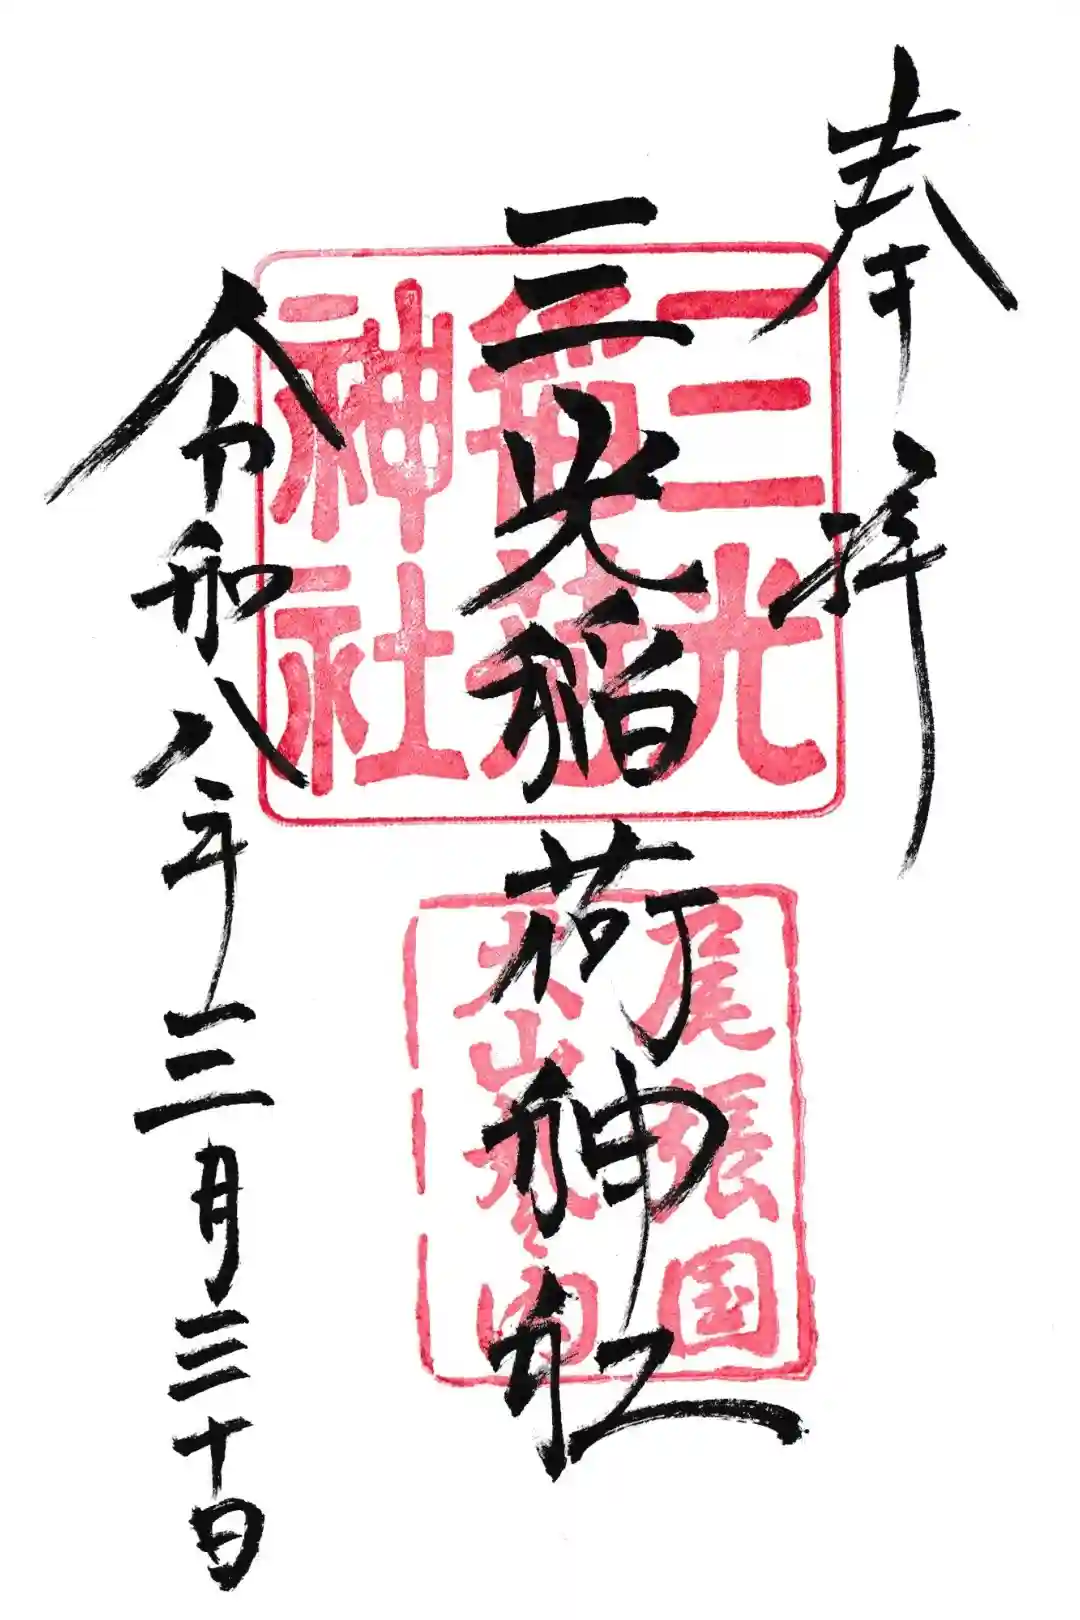 奉拝
三光稲荷神社
令和八年三月三十日
三光
稲荷
神社
尾張国
犬山
内